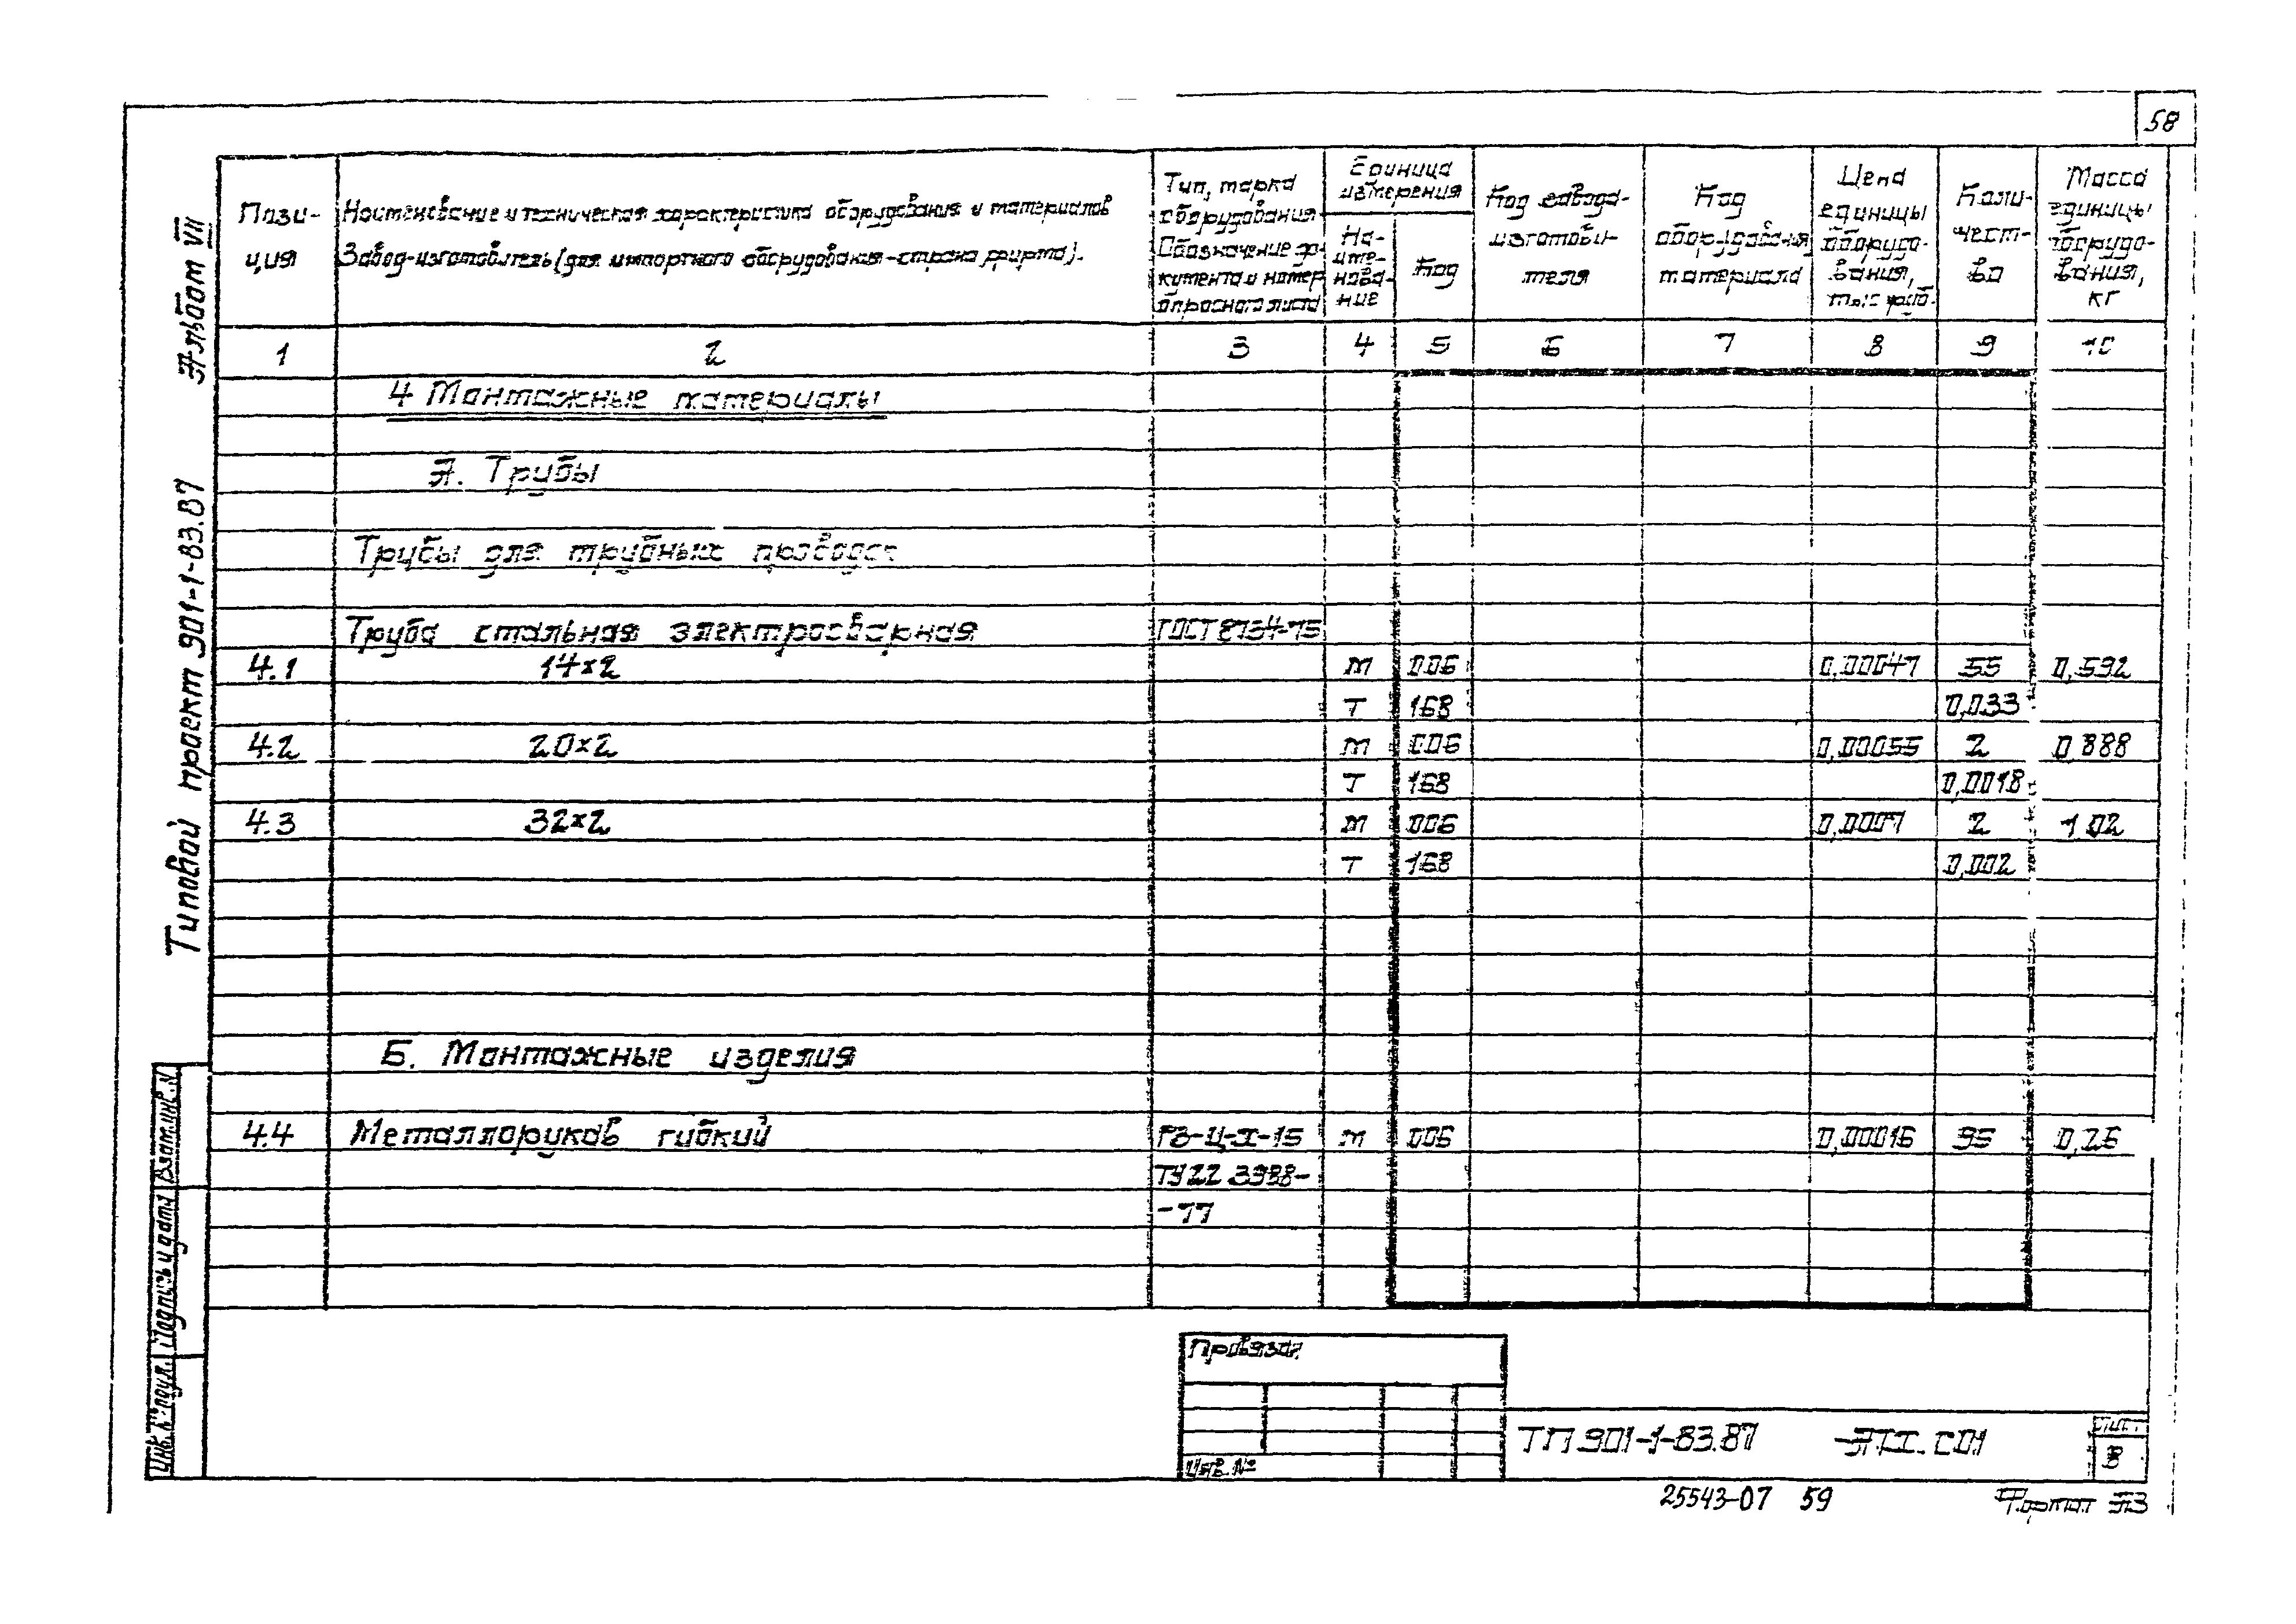 58
Альбом VII
Типовой проект 901-1-83.87
Пози-
ция
Наименование и техническая характеристика оборудования и материалов
Завод-изготовитель (для импортного оборудования-страна фирма).
Тип, марка
оборудования
Обозначение до-
кумента и номер
опросного листа
Единица
измерения
На-
име-
нова-
ние
Код
Код завода-
изготови-
теля
Код
оборудования
материала
Цена
единицы
оборудо-
вания,
тыс руб.
Коли-
чест-
во
Масса
единицы
оборудо-
вания,
кг
1 2 3 4 5 6 7 8 9 10
4 Монтажные материалы
А. Трубы
Трубы для трубных проводок
Труба стальная электросварная ГОСТ 8734-75
4.1 14×2 м 006 0,00047 55 0,592
т 168 0,033
4.2 20×2 м 006 0,00055 2 0,888
т 168 0,0018
4.3 32×2 м 006 0,0007 2 1 02
т 168 0,002
Б. Монтажные изделия
4.4 Металлорукав гибкий РЗ-Ц-Х-15 м 006 0,00016 95 0,26
ТУ 22 3988-
-77
Взам.инв.N
Подпись и дата
Инв. № подл.
Привязан
Инв. №
ТП 901-1-83.87 -АТХ. СО1
Лист
8
25543-07 59
Формат А3